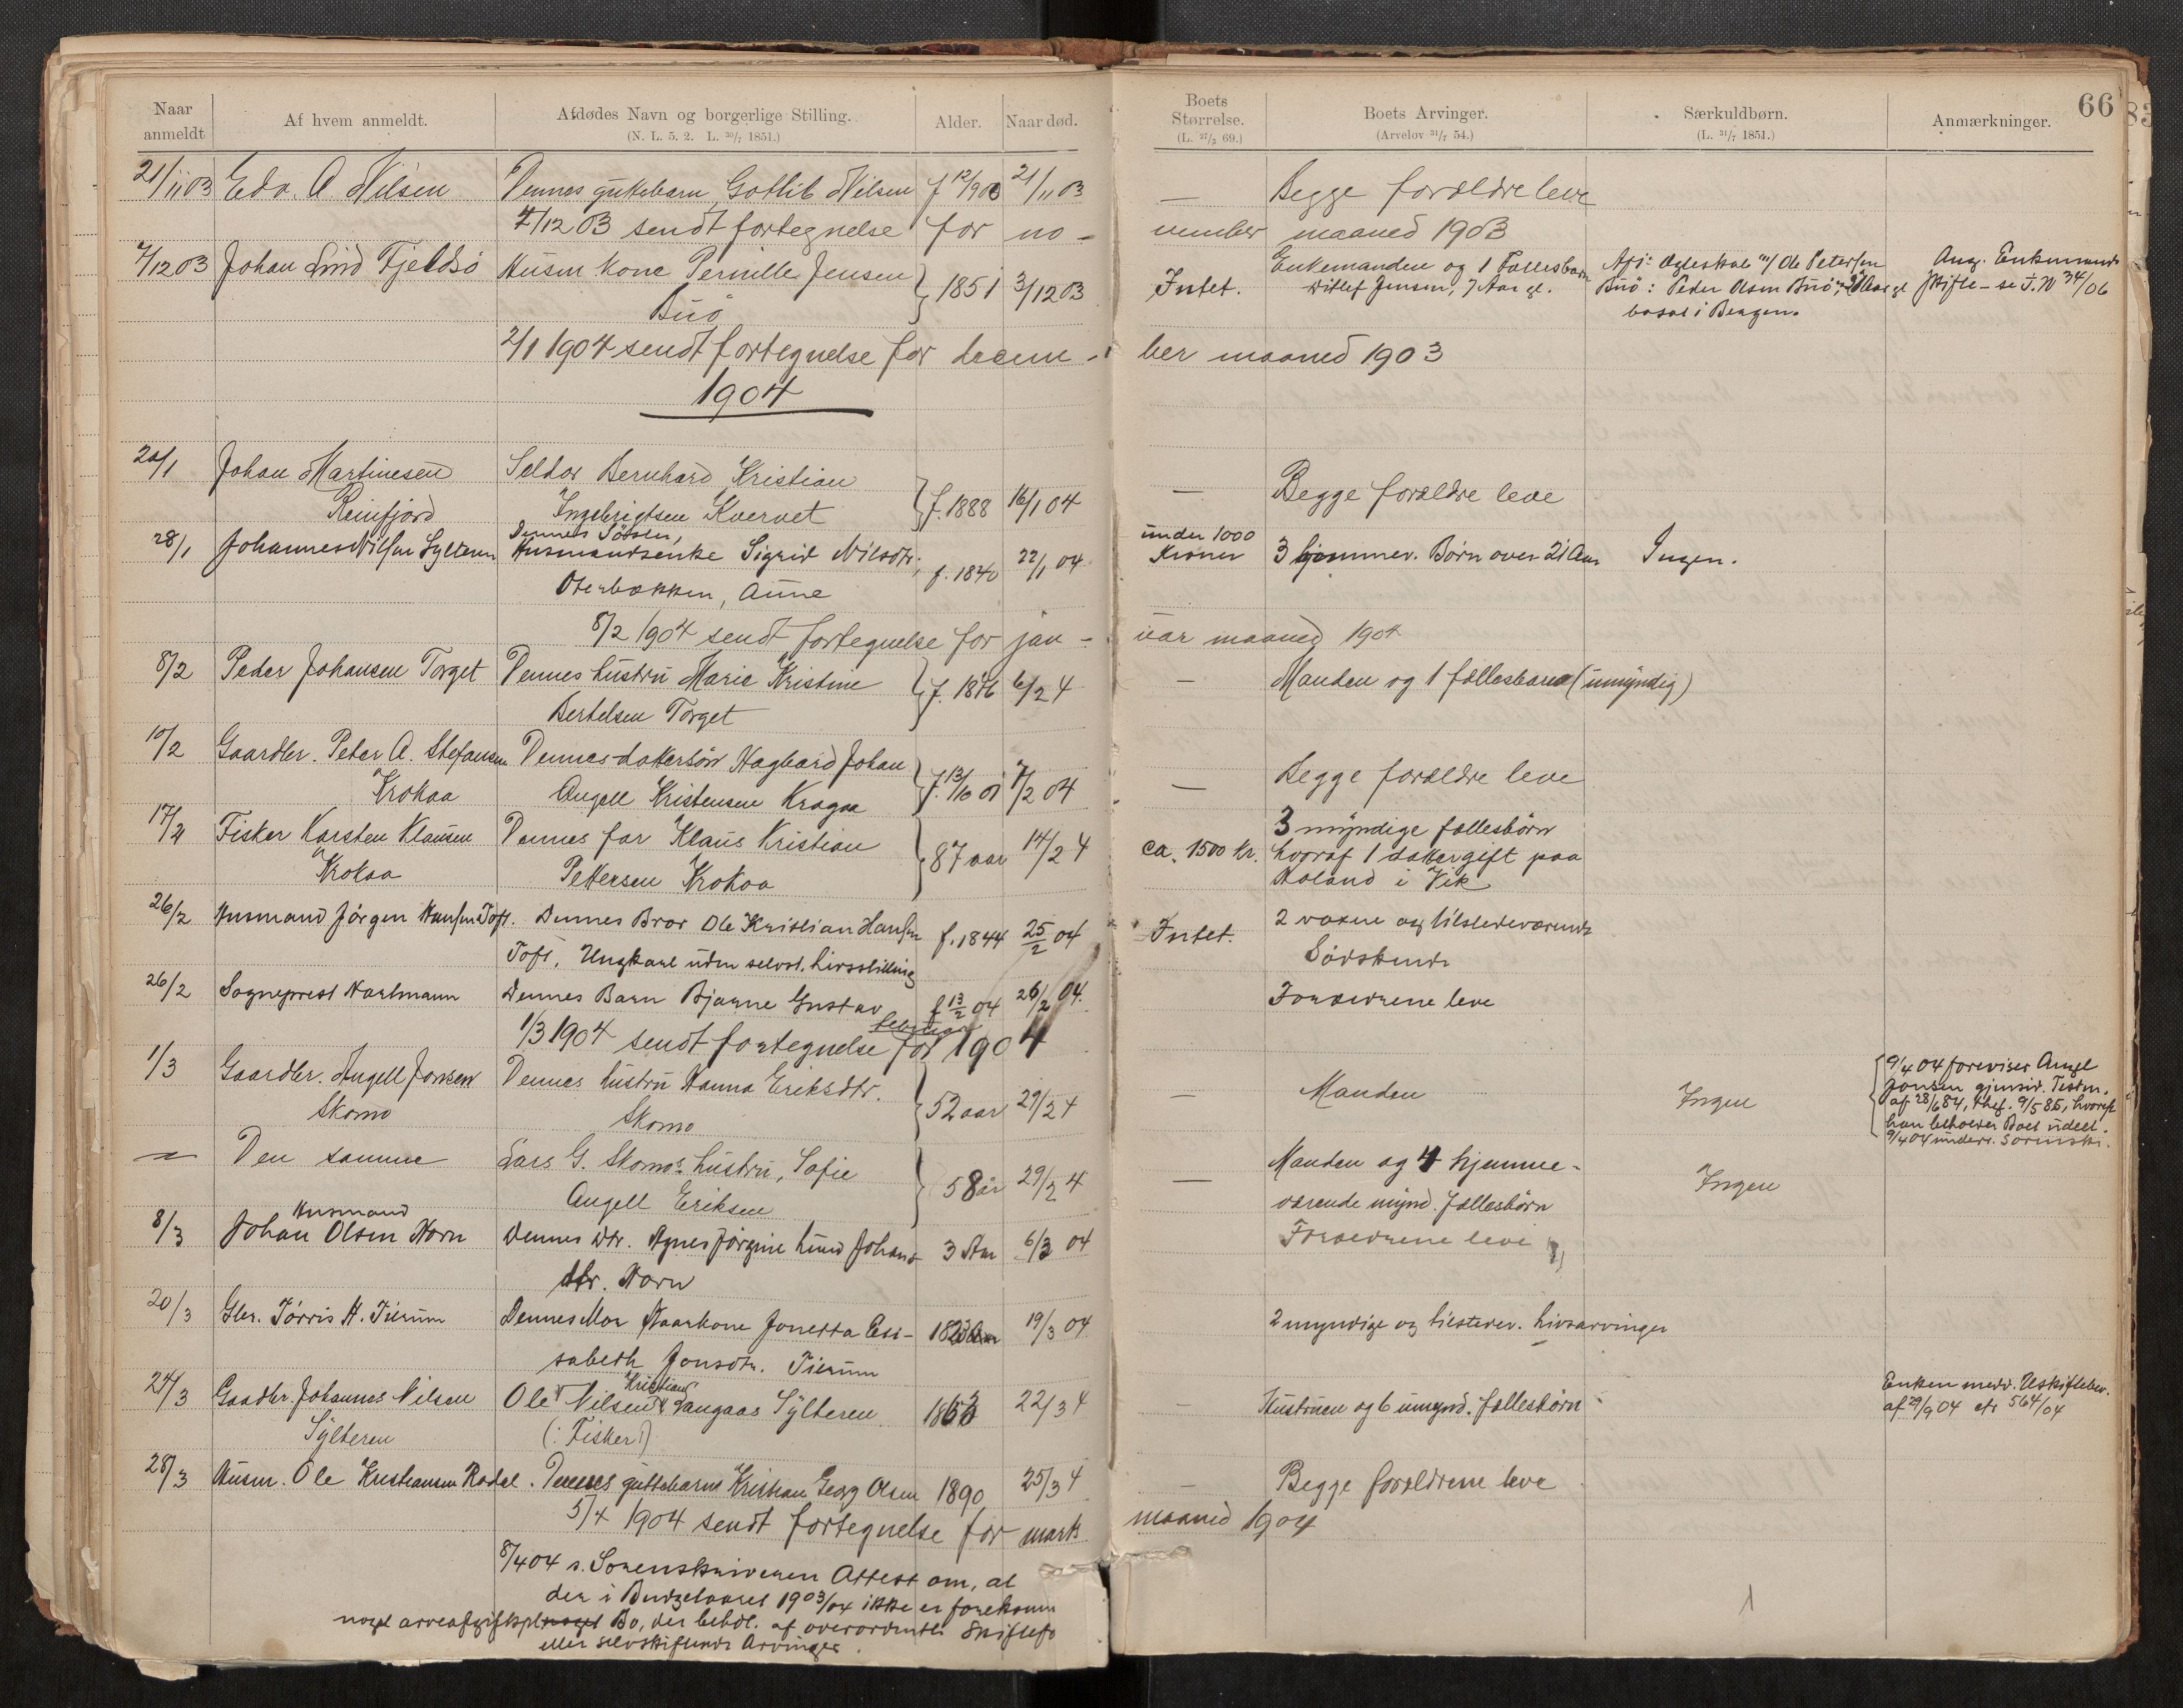 Naar anmeldt
Af hvem anmeldt.
Afdødes Navn og borgerlige Stilling.
(N. L. 5. 2. L. 30/7 1851.)
Alder.
Naar død.
Boets Størrelse.
(L. 27/3 69.)
Boets Arvinger.
(Arvelov 31/7 54.)
Særkuldbørn.
(L. 31/7 1851.)
Anmærkninger.
66
21/11 03 Edv. A Nilsen Dennes guttebarn Gotlib Nilsen 21/11 03 — Begge forældre leve
7/12 03 sendt fortegnelse for november maaned 1903
7/12 03 Johan Lind Fjeldsø Husm kone Pernille Jensen 1851 3/12 03 Intet. Enkemanden og 1 Fællesbarn
Buø Ditlef Jensen, 7 Aar gl.
Ægteskab m/ Ole Petersen
Buø: Peder Olsen Buø,
bosat i Bergen.
Ang. Enkemands
skifte - se J. N 34/06
2/1 1904 sendt fortegnelse for decem-ber maaned 1903
1904
20/1 Johan Martinesen Seldor Bernhard Kristian
Reinfjord Ingebrigtsen Kvervet f. 1888 16/1 04 — Begge forældre leve
28/1 Johannes Nilsen Sylteren Dennes Søster,
Husmandsenke Sigrid Nilsdtr. f. 1840 22/1 04 under 1000
Kroner 3 hjemmev. Børn over 21 Aar Ingen.
Oterbækken, Aune
8/2 1904 sendt fortegnelse for jan-uar maaned 1904
8/2 Peder Johansen Torget Dennes hustru Marie Kristine 6/2 4 — Manden og 1 fællesbarn (umyndig)
Bertelsen Torget
10/2 Gaardbr. Peter A. Stefansen Dennes dattersøn Hagbard Johan
Krokaa Angell Kristensen Kragaa f. 13/10 01 7/2 04 — Begge forældre leve
17/2 Fisker Karsten Klausen Dennes far Klaus Kristian
Krokaa Pettersen Krokaa 87 aar 14/2 4 ca. 1500 kr.
3 myndige fællesbørn
hvoraf 1 datter gift paa
Holand i Vik
26/2 Husmand Jørgen Hansen Toft. Dennes Bror Ole Kristian Hansen f. 1844 25/2 04 Intet. 2 voxne og tilstedeværende
Toft, Ungkarl uden selvst. livsstilling Sødskende
26/2 Sogneprest Hartmann Dennes Barn Bjarne Gustav f 13/2 04 26/2 04. Forældrene leve
1/3 1904 sendt fortegnelse for februar 1904
1/3 Gaardbr. Angell Jonsen Dennes hustru Hanna Eriksdtr.
Skomo Skomo 52 aar 29/2 4 — Manden Ingen
9/4 04 foreviser Angel
Jonsen gjensid. Testm.
af 28/6 84, 9/5 85, hvorefter
han beholder Boet udelt.
9/4 04 underr. Sorenskr.
Den samme Lars G. Skomos hustru, Sofie
Angell Eriksen 58 år 29/2 4 — Manden og 4 hjemme-
værende mynd. fællesbørn Ingen
8/3 Husmand
Johan Olsen Horn Dennes Dtr. Agnes Jørgine Lund Johans- 3 Aar 6/3 04 Forældrene leve
dtr. Horn
20/3 Gbr. Tørris H. Tierum Dennes Mor Kaarkone Jonetta Eli- 19/3 04 2 myndige og tilstedev. livsarvinger
sabeth Jonsdtr. Tierum
24/3 Gaadbr. Johannes Nilsen Ole Kristian Nilsen Langaas Sylteren 22/3 4 — Hustruen og 6 umynd. fællesbørn
Sylteren (: Fisker :)
Enken medd. Uskiftebev.
af 29/9 04 564/04
28/3 Husm. Ole Kristiansen Rodal. Dennes guttebarn Kristian Georg Olsen 1890 25/3 4 — Begge forældrene leve
5/4 1904 sendt fortegnelse for marts maaned 1904
8/4 04 s. Sorenskriveren Attest om, at
der i Budgetaaret 1903/04 ikke er forekomm
noget arveafgiftspl. Bo, der behdl. af overordentli Skiftefo
eller selvskiftende Arvinger.